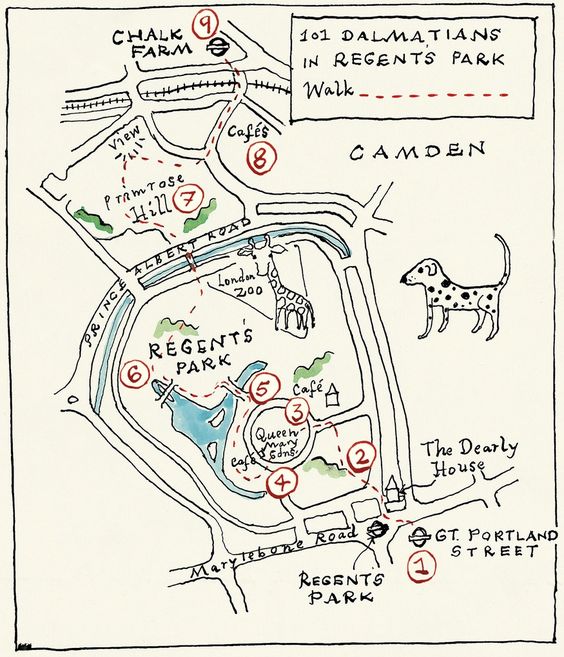 101 DALMATIANS
IN REGENT'S PARK
Walk
9
CHALK
FARM
View
Cafés
8
CAMDEN
Primrose
Hill
7
PRINCE ALBERT ROAD
London
ZOO
REGENT'S
PARK
6
5
Café
3
Queen
Mary
Gdns.
2
Café
4
The Dearly
House
Marylebone Road
GT. PORTLAND
STREET
1
REGENTS
PARK